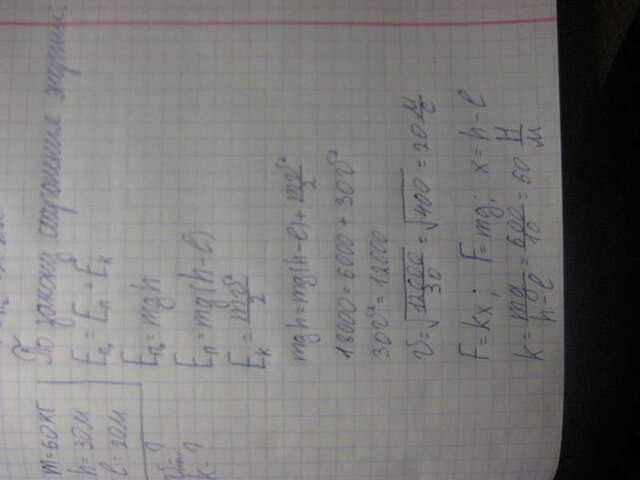 m=60кг
h=30м
l=20м
V=?
k=?
По закону сохранения энергии:
Eп₁ = Eп + Eк
Eп₁ = mgh
Eп = mg(h-l)
Eк = mv²/2
mgh = mg(h-l) + mv²/2
18000 = 6000 + 30v²
30v² = 12000
v = √12000/30 = √400 = 20 м/с
F = kx; F = mg; x = h-l
k = mg/h-l = 600/10 = 60 Н/м